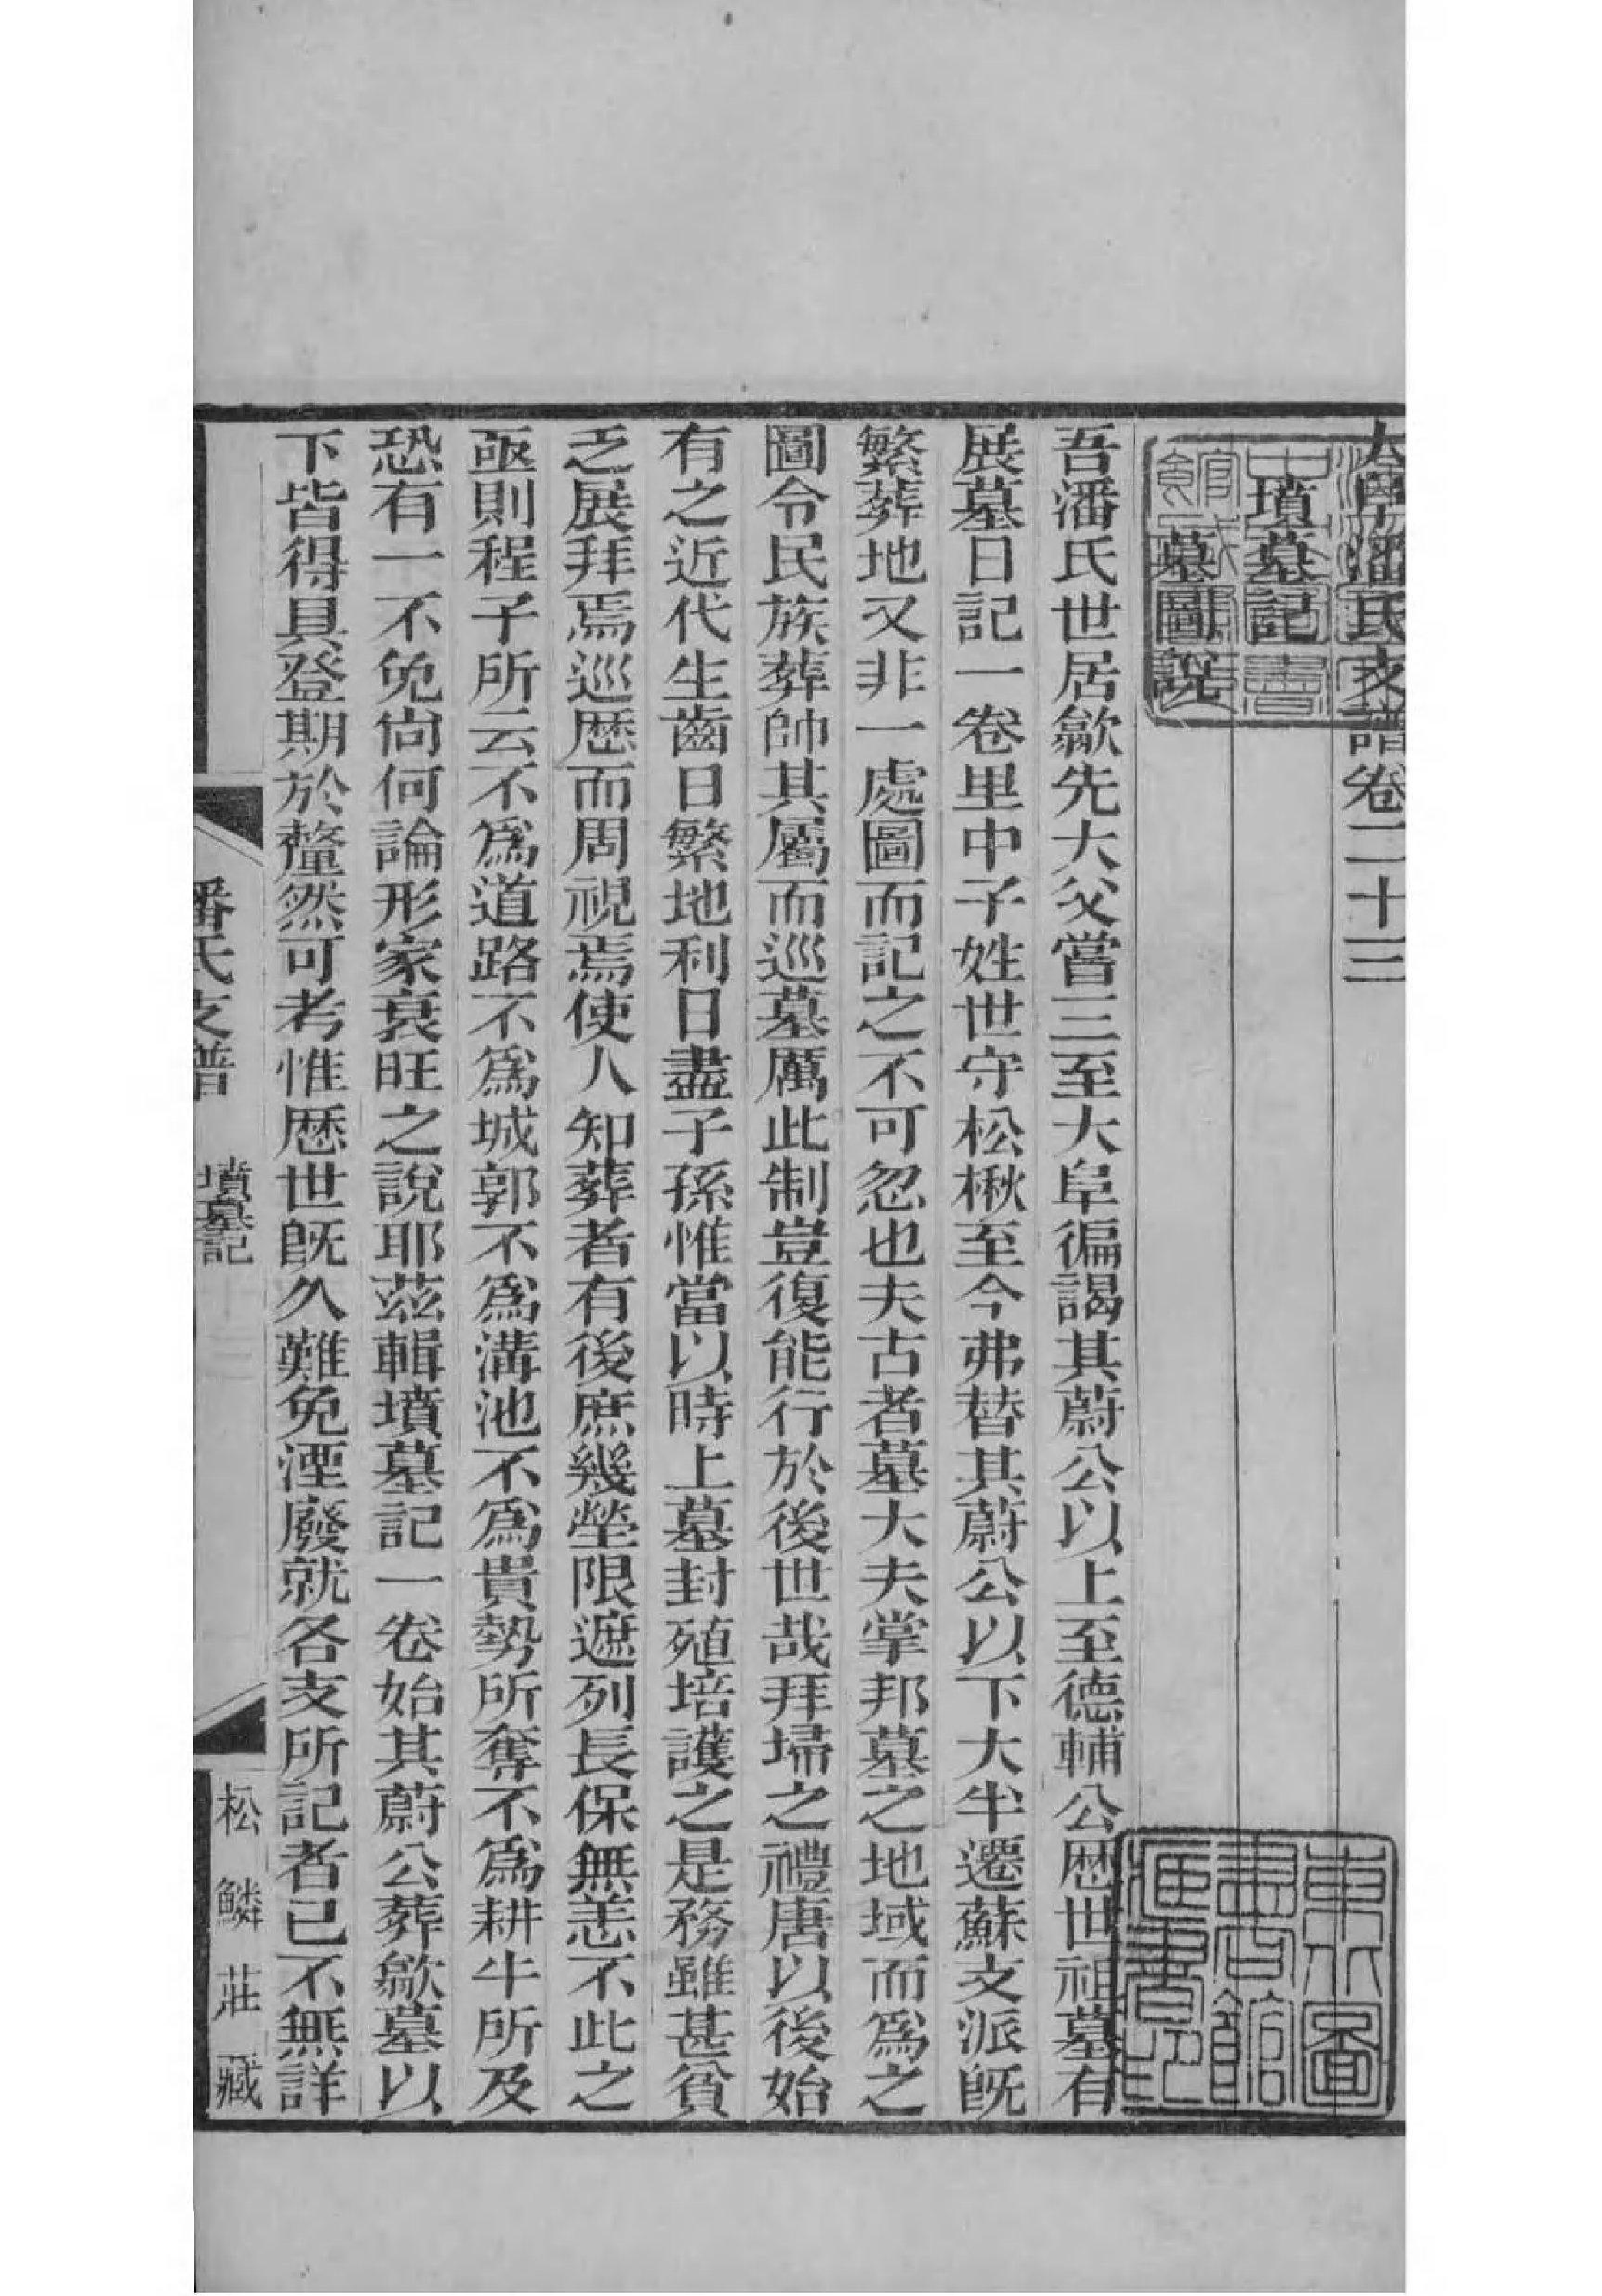 大阜潘氏支譜卷二十三
墳墓記
墓圖說
吾潘氏世居歙先大父嘗三至大阜徧謁其蔚公以上至德輔公歴世祖墓有
展墓日記一卷里中子姓世守松楸至今弗替其蔚公以下大半遷蘇支派旣
繁葬地又非一處圖而記之不可忽也夫古者墓大夫掌邦墓之地域而爲之
圖令民族葬帥其屬而巡墓厲此制豈復能行於後世哉拜埽之禮唐以後始
有之近代生齒日繁地利日盡子孫惟當以時上墓封殖培護之是務雖甚貧
乏展拜焉巡歴而周視焉使人知葬者有後庶幾塋限遮列長保無恙不此之
亟則程子所云不爲道路不爲城郭不爲溝池不爲貴勢所奪不爲耕牛所及
恐有一不免尙何論形家衰旺之說耶茲輯墳墓記一卷始其蔚公葬歙墓以
下皆得具登期於釐然可考惟歴世旣久難免湮廢就各支所記者已不無詳
潘氏支譜 墳墓記
松鱗莊藏